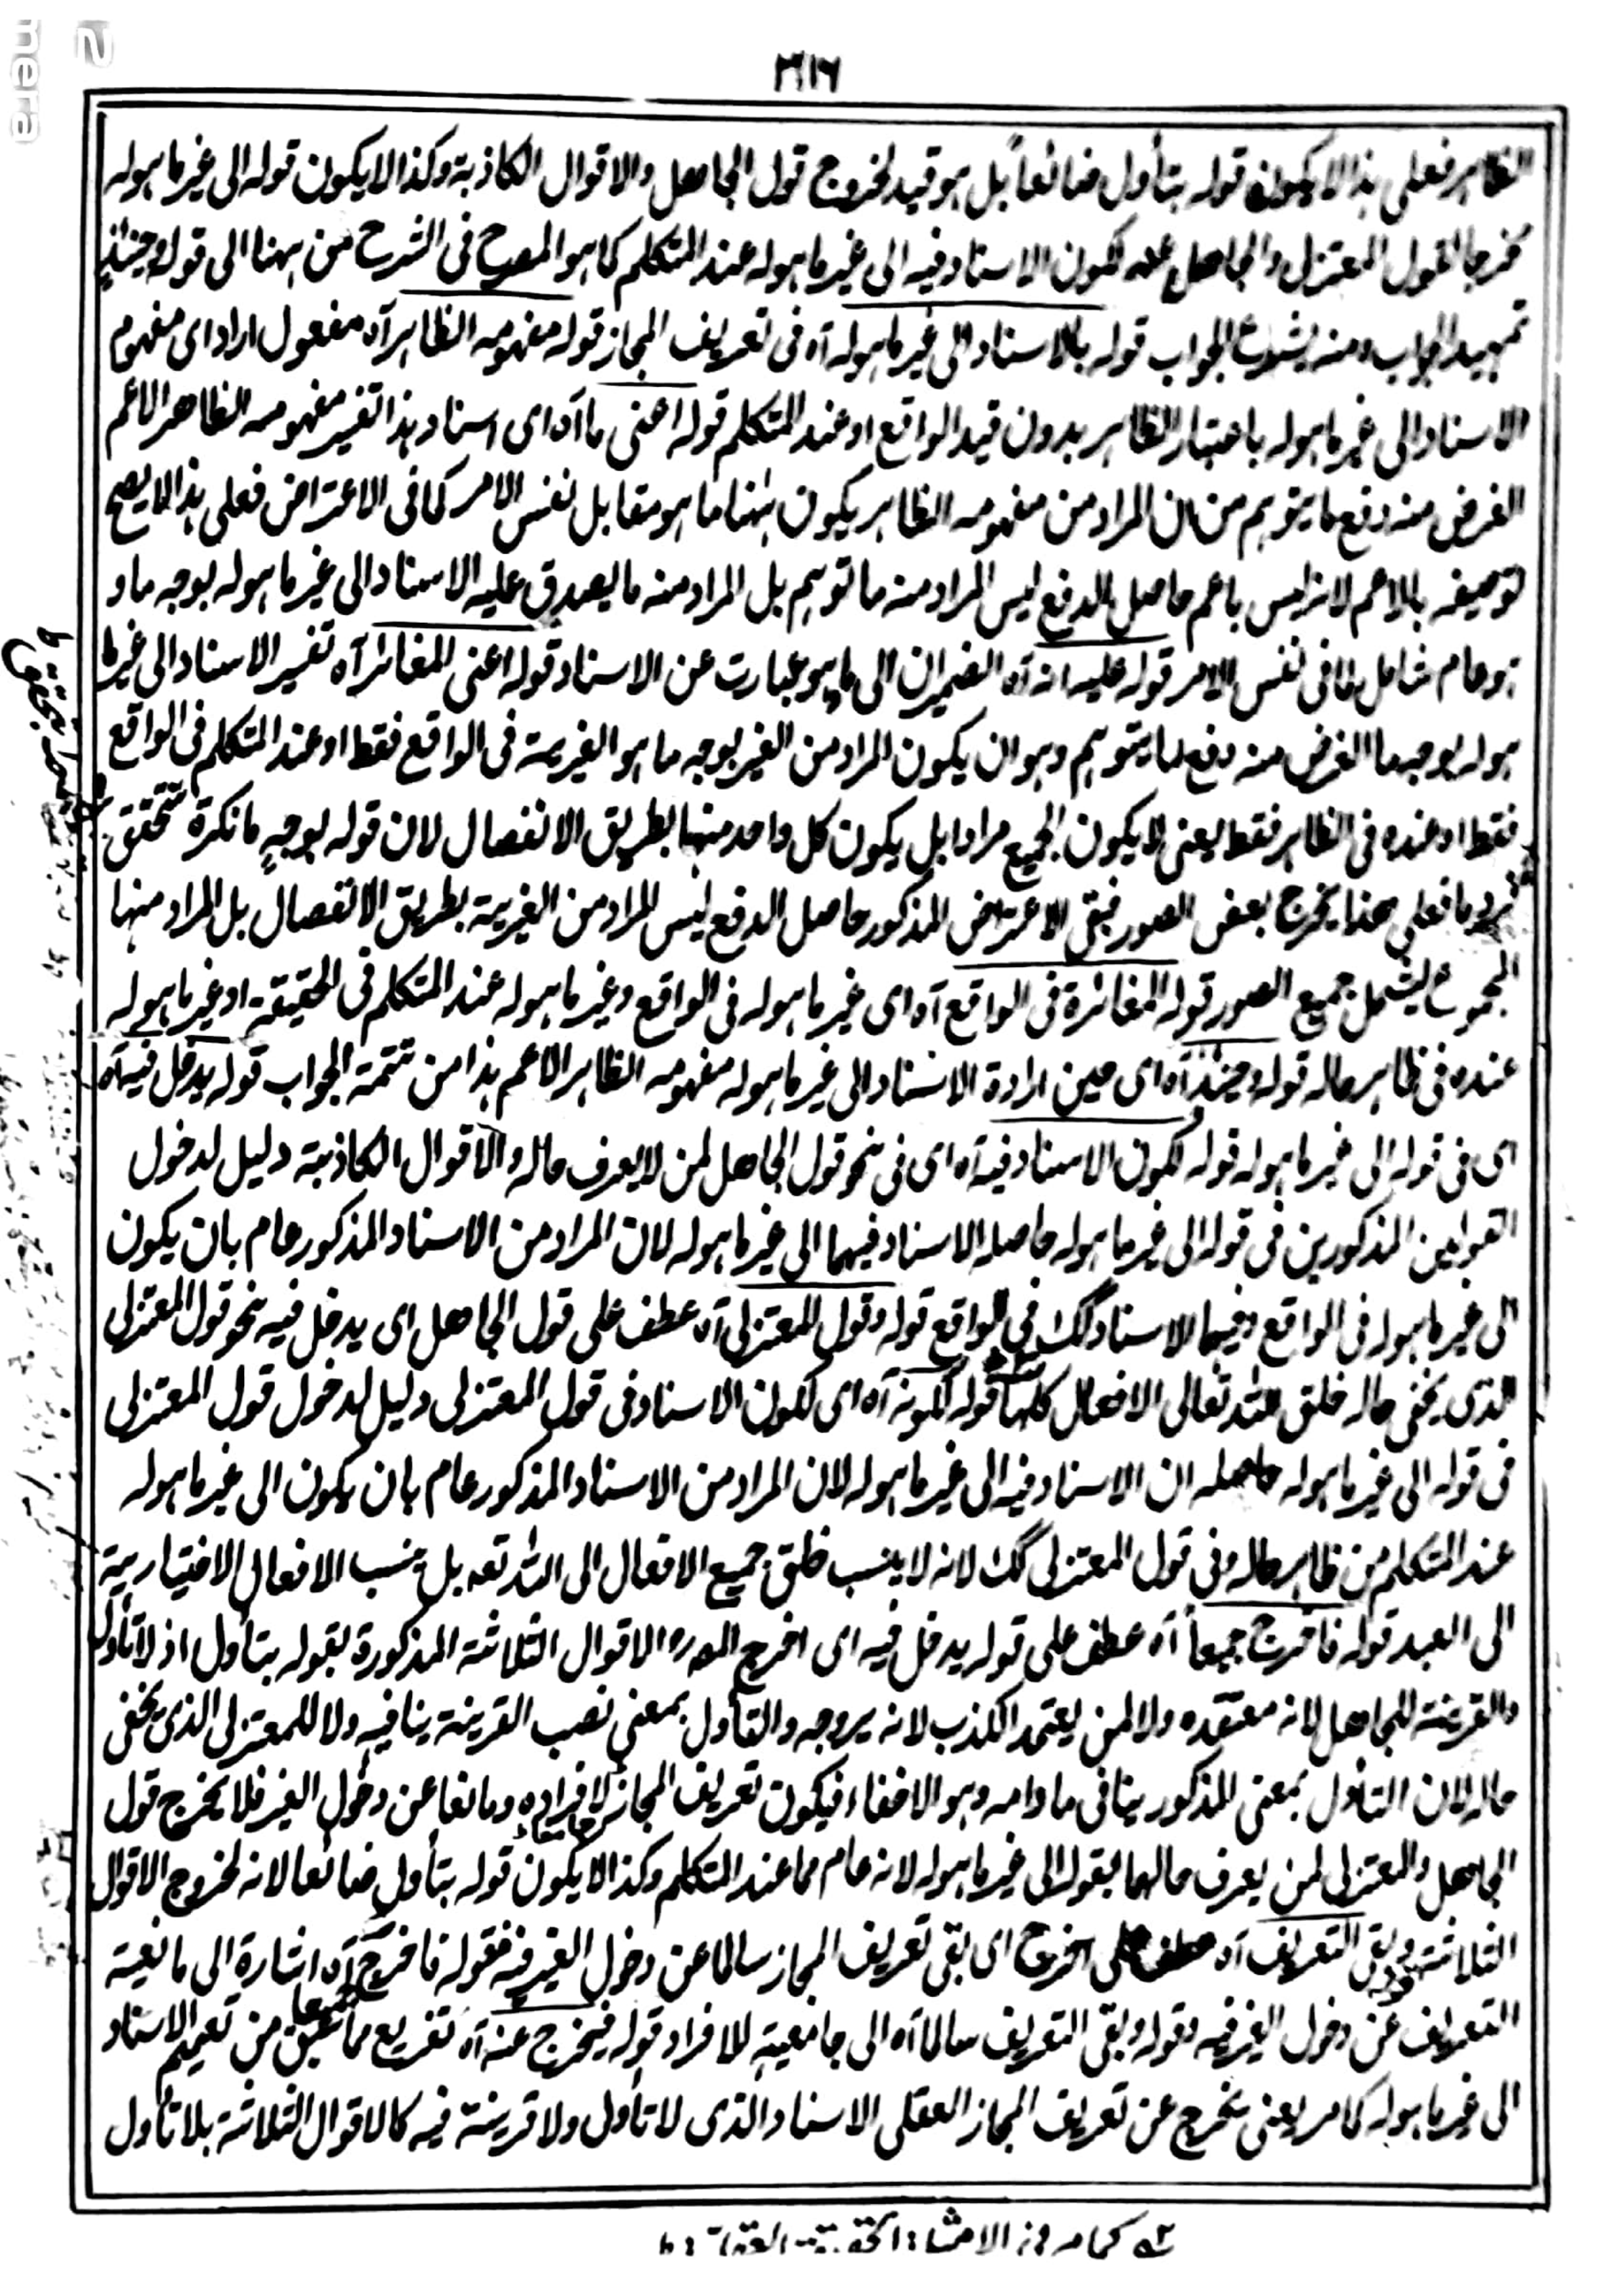 ٣١٦
الظاهر فعلى هذا لا يكون قوله بتأول ضائعاً بل هو قيد لخروج قول الجاهل والاقوال الكاذبة وكذا لا يكون قوله الى غير ما هو له
مخرجا لقول المعتزلى والجاهل عنه لكون الاسناد فيه الى غير ما هو له عند المتكلم كما هو المصرح فى الشرح من ههنا الى قوله وحينئذٍ
تمهيد الجواب ومنه يشرع الجواب قوله بالاسناد الى غير ما هو له آه فى تعريف المجاز قوله مفهومه الظاهر آه مفعول اراد اى مفهوم
الاسناد الى غير ما هو له باعتبار الظاهر بدون قيد الواقع او عند المتكلم قوله اعنى ما آه اى اسناد هذا تفسير مفهومه الظاهر الاعم
الغرض منه دفع ما يتوهم من ان المراد من مفهومه الظاهر يكون ههنا ما هو مقابل نفس الامر كما فى الاعتراض فعلى هذا لا يصح
توصيفه بالاعم لانه ليس باعم حاصل الدفع ليس المراد منه ما توهم بل المراد منه ما يصدق عليه الاسناد الى غير ما هو له بوجه ما و
هو عام شامل لما فى نفس الامر قوله عليه انه آه الضميران الى ما هو عبارت عن الاسناد قوله اعنى المغائر آه تفسير الاسناد الى غير ما
هو له بوجه ما الغرض منه دفع لما يتوهم وهو ان يكون المراد من الغير بوجه ما هو الغيرية فى الواقع فقط او عند المتكلم فى الواقع
فقط او عنده فى الظاهر فقط يعنى لا يكون الجميع مرادا بل يكون كل واحد منها بطريق الانفصال لان قوله بوجهٍ ما نكرة تتحقق
فرد ما فعلى هذا يخرج بعض الصور فبقى الاعتراض المذكور حاصل الدفع ليس المراد من الغيرية بطريق الانفصال بل المراد منها
المجموع ليشمل جميع الصور قوله المغائرة فى الواقع آه اى غير ما هو له فى الواقع وغير ما هو له عند المتكلم فى الحقيقة او غير ما هو له
عنده فى ظاهر حاله قوله وحينئذ آه اى حين ارادة الاسناد الى غير ما هو له مفهومه الظاهر الاعم هذا من تتمة الجواب قوله يدخل فيه آه
اى فى قوله الى غير ما هو له قوله لكون الاسناد فيه آه اى فى نحو قول الجاهل لمن لا يعرف حاله والاقوال الكاذبة دليل لدخول
القولين المذكورين فى قوله الى غير ما هو له حاصله الاسناد فيهما الى غير ما هو له لان المراد من الاسناد المذكور عام بان يكون
الى غير ما هو له فى الواقع وفيهما الاسناد كك فى الواقع قوله وقول المعتزلى آه عطف على قول الجاهل اى يدخل فيه نحو قول المعتزلى
الذى يخفى حاله خلق الله تعالى الافعال كلها قوله لكونه آه اى لكون الاسناد فى قول المعتزلى دليل لدخول قول المعتزلى
فى قوله الى غير ما هو له حاصله ان الاسناد فيه الى غير ما هو له لان المراد من الاسناد المذكور عام بان يكون الى غير ما هو له
عند المتكلم من ظاهر حاله وفى قول المعتزلى كك لانه لا ينسب خلق جميع الافعال الى الله تعه بل ينسب الافعال الاختيارية
الى العبد قوله فاخرج جميعاً آه عطف على قوله يدخل فيه اى اخرج المصره الاقوال الثلاثة المذكورة بقوله بتأول اذ لا تأول
والقرينة للجاهل لانه معتقده ولا لمن يعتمد الكذب لانه يروجه والتأول بمعنى نصب القرينة ينافيه ولا للمعتزلى الذى يخفى
حاله لان التاول بمعنى المذكور ينافى ما دامه وهو الاخفاء فيكون تعريف المجاز جامعا لافراده ومانعا عن دخول الغير فلا يخرج قول
الجاهل والمعتزلى لمن يعرف حالهما بقوله الى غير ما هو له لانه عام مما عند المتكلم وكذا لا يكون قوله بتأول ضائعا لانه لخروج الاقوال
الثلاثة قوله وبقى التعريف آه عطف على اخرج اى بقى تعريف المجاز سالما عن دخول الغير فيه فقوله فاخرج آه اشارة الى مانعية
التعريف عن دخول الغير فيه وقوله وبقى التعريف سالما آه الى جامعيته للافراد قوله فيخرج عنه آه تفريع مما سبق من تعميم الاسناد
الى غير ما هو له كما مر يعنى يخرج عن تعريف المجاز العقلى الاسناد الذى لا تأول ولا قرينة فيه كالاقوال الثلاثة بلا تأول